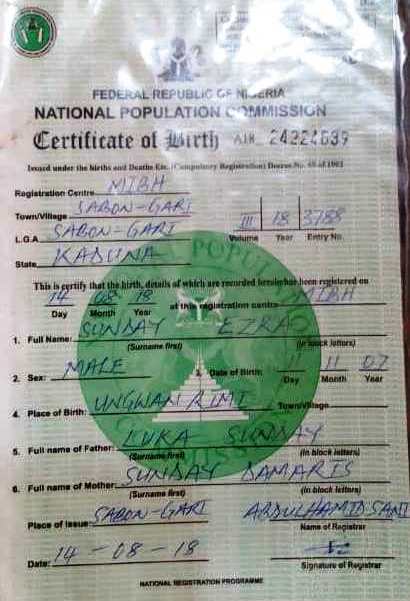 FEDERAL REPUBLIC OF NIGERIA
NATIONAL POPULATION COMMISSION
Certificate of Birth AIR 24224639
Issued under the births and Deaths Etc. (Compulsory Registration) Decree No. 69 of 1992
Registration Centre MIBH
Town/Village SABON-GARI
L.G.A SABON-GARI III 18 3788
Volume Year Entry No.
State KADUNA
This is certify that the birth, details of which are recorded herein has been registered on
14 08 18 at this registration centre MIBH
Day Month Year
1. Full Name: SUNDAY EZRA
(Surname first) (In block letters)
2. Sex: MALE 3. Date of Birth: 11 11 07
Day Month Year
4. Place of Birth: UNGWAN RIMI Town/Village
5. Full name of Father: LUKA SUNDAY
(Surname first) (In block letters)
6. Full name of Mother: SUNDAY DAMARIS
(Surname first) (In block letters)
Place of Issue: SABON-GARI ABDULHAMID SANI
Name of Registrar
Date: 14-08-18
Signature of Registrar
NATIONAL REGISTRATION PROGRAMME